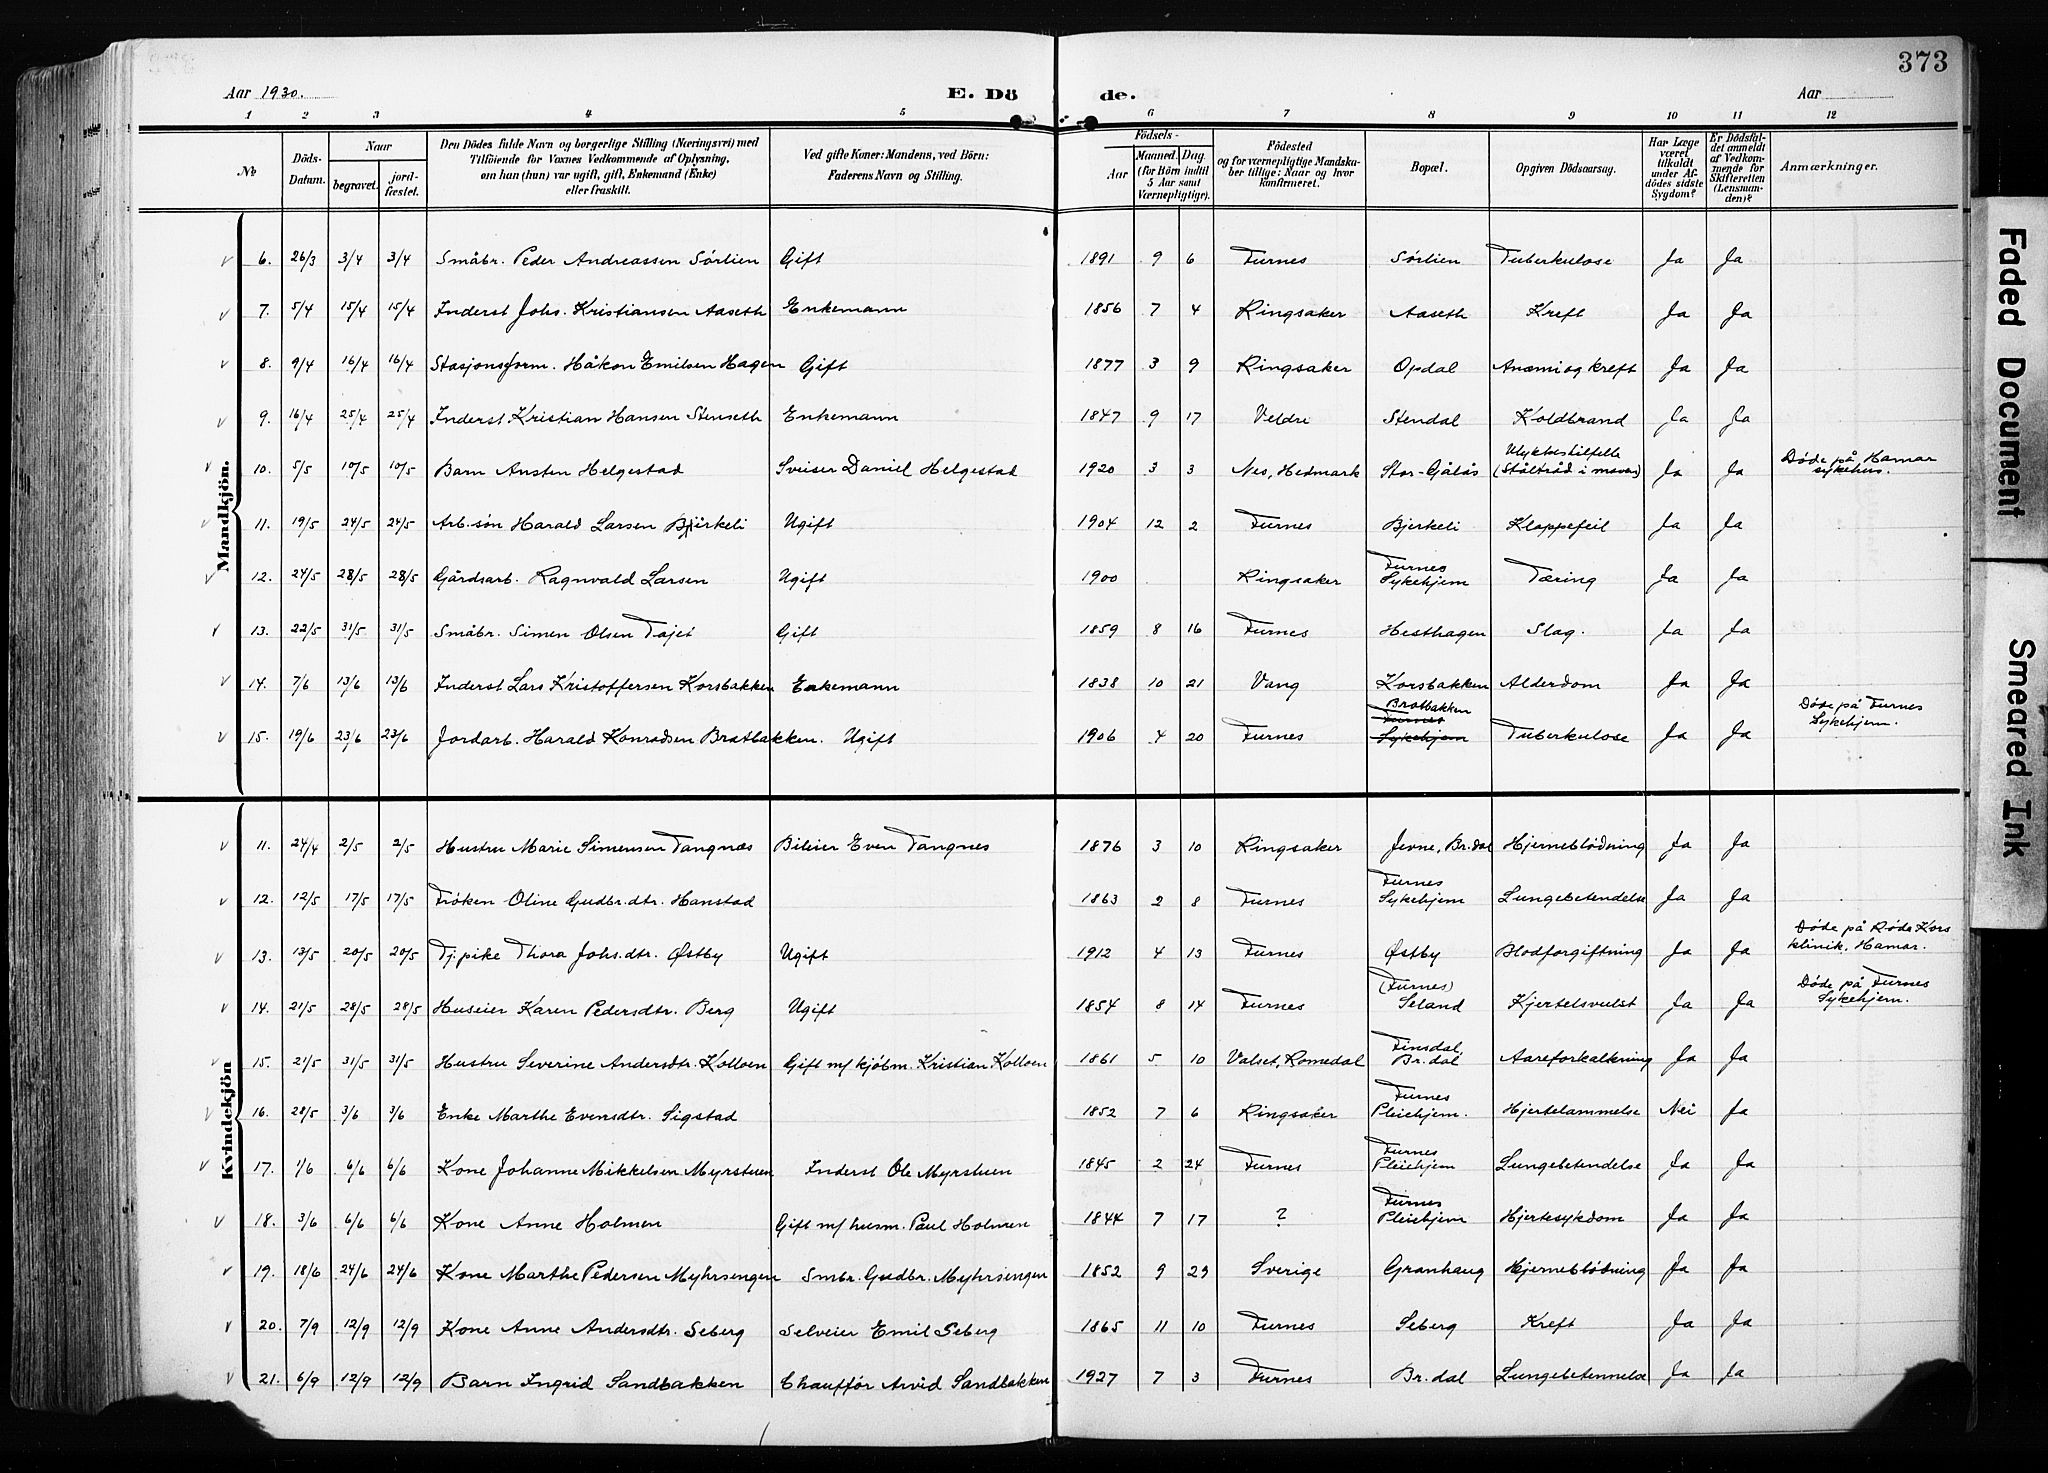 373
Aar 1930.
E. Döde.
Aar
1 2 3 4 5 6 7 8 9 10 11 12
No
Döds-Datum.
Naar
begravet.
jord-fæstet.
Den Dödes fulde Navn og borgerlige Stilling (Næringsvei) med
Tilföiende for Voxnes Vedkommende af Oplysning,
om han (hun) var ugift, gift, Enkemand (Enke)
eller fraskilt.
Ved gifte Koner: Mandens, ved Börn:
Faderens Navn og Stilling.
Födsels-
Aar
Maaned. Dag.
(for Börn indtil
5 Aar samt
Værnepligtige).
Födested
og for værnepligtige Mandska-
ber tillige: Naar og hvor
konfirmeret.
Bopæl.
Opgiven Dödsaarsag.
Har Læge
været
tilkaldt
under Af-
dödes sidste
Sygdom?
Er Dödsfal-
det anmeldt
af Vedkom-
mende for
Skifteretten
(Lensman-
den)?
Anmærkninger.
Mandkjön.
6. 26/3 3/4 3/4 Småbr. Peder Andreassen Sörlien Gift 1891 9 6 Furnes Sörlien Tuberkulose Ja Ja
7. 5/4 15/4 15/4 Inderst Johs. Kristiansen Aaseth Enkemann 1856 7 4 Ringsaker Aaseth Kreft Ja Ja
8. 9/4 16/4 16/4 Stasjonsform. Håkon Emilsen Hagen Gift 1877 3 9 Ringsaker Opdal Anæmi og kreft Ja Ja
9. 16/4 25/4 25/4 Inderst Kristian Hansen Stenseth Enkemann 1847 9 17 Veldre Stendal Koldbrand Ja Ja
10. 5/5 10/5 10/5 Barn Austen Helgestad Sveiser Daniel Helgestad 1920 3 3 Nes, Hedmark Stor-Gjålås Ulykkestilfelle (Ståltråd i maven) Ja Ja Døde på Hamar sykehus.
11. 19/5 24/5 24/5 Arb.søn Harald Larsen Bjirkeli Ugift 1904 12 2 Furnes Bjerkeli Klappefeil Ja Ja
12. 24/5 28/5 28/5 Gårdsarb. Ragnvald Larsen Ugift 1900 Ringsaker Furnes Sykehjem Tæring Ja Ja
13. 22/5 31/5 31/5 Småbr. Simen Olsen Tajet Gift 1859 8 16 Furnes Hesthagen Slag. Ja Ja
14. 7/6 13/6 13/6 Inderst Lars Kristoffersen Korsbakken Enkemann 1838 10 21 Vang Korsbakken Alderdom Ja Ja
15. 19/6 23/6 23/6 Jordarb. Harald Konradsen Bratbakken. Ugift 1906 4 20 Furnes Bratbakken Furnes Sykehjem Tuberkulose Ja Ja Døde på Furnes Sykehjem.
Kvindekjön
11. 24/4 2/5 2/5 Hustru Marie Simensen Tangnæs Bileier Even Tangnes 1876 3 10 Ringsaker Jevne, Br.dal Hjerneblödning Ja Ja
12. 12/5 17/5 17/5 Fröken Oline Gudbr.dtr. Hanstad 1863 2 8 Furnes Furnes Sykehjem Lungebetendelse Ja Ja
13. 13/5 20/5 20/5 Tj.pike Thora Johs.dtr. Østby Ugift 1912 4 13 Furnes Østby Blodforgiftning Ja Ja Døde på Røde Kors klinik, Hamar.
14. 21/5 28/5 28/5 Huseier Karen Pedersdtr. Berg Ugift 1854 8 14 Furnes (Furnes) Seland Kjertelsvulst Ja Ja Døde på Furnes Sykehjem.
15. 21/5 31/5 31/5 Hustru Severine Andersdtr. Kolloen Gift m/ kjöbm. Kristian Kolloen 1861 5 10 Valset, Romedal Finsdal, Br.dal Aareforkalkning Ja Ja
16. 28/5 3/6 3/6 Enke Marthe Evensdtr. Sigstad 1852 7 6 Ringsaker Furnes Pleiehjem. Hjertelammelse Nei Ja
17. 1/6 6/6 6/6 Kone Johanne Mikkelsen Myrstuen Inderst Ole Myrstuen 1845 2 24 Furnes Furnes Pleiehjem Lungebetendelse Ja Ja
18. 3/6 6/6 6/6 Kone Anne Holmen Gift m/ husm. Paul Holmen 1844 7 17 ? Furnes Pleiehjem Hjertesykdom Ja Ja
19. 18/6 24/6 24/6 Kone Marthe Pedersen Myhrsengen Smbr. Gudbr. Myhrsengen 1852 9 29 Sverige Granhaug Hjerneblödning Ja Ja
20. 7/9 12/9 12/9 Kone Anne Andersdtr. Seberg Selveier Emil Seberg 1865 11 10 Furnes Seberg Kreft Ja Ja
21. 6/9 12/9 12/9 Barn Ingrid Sandbakken Chauffør Arvid Sandbakken 1927 7 3 Furnes Br.dal Lungebetennelse Ja Ja
Faded Document
Smeared Ink